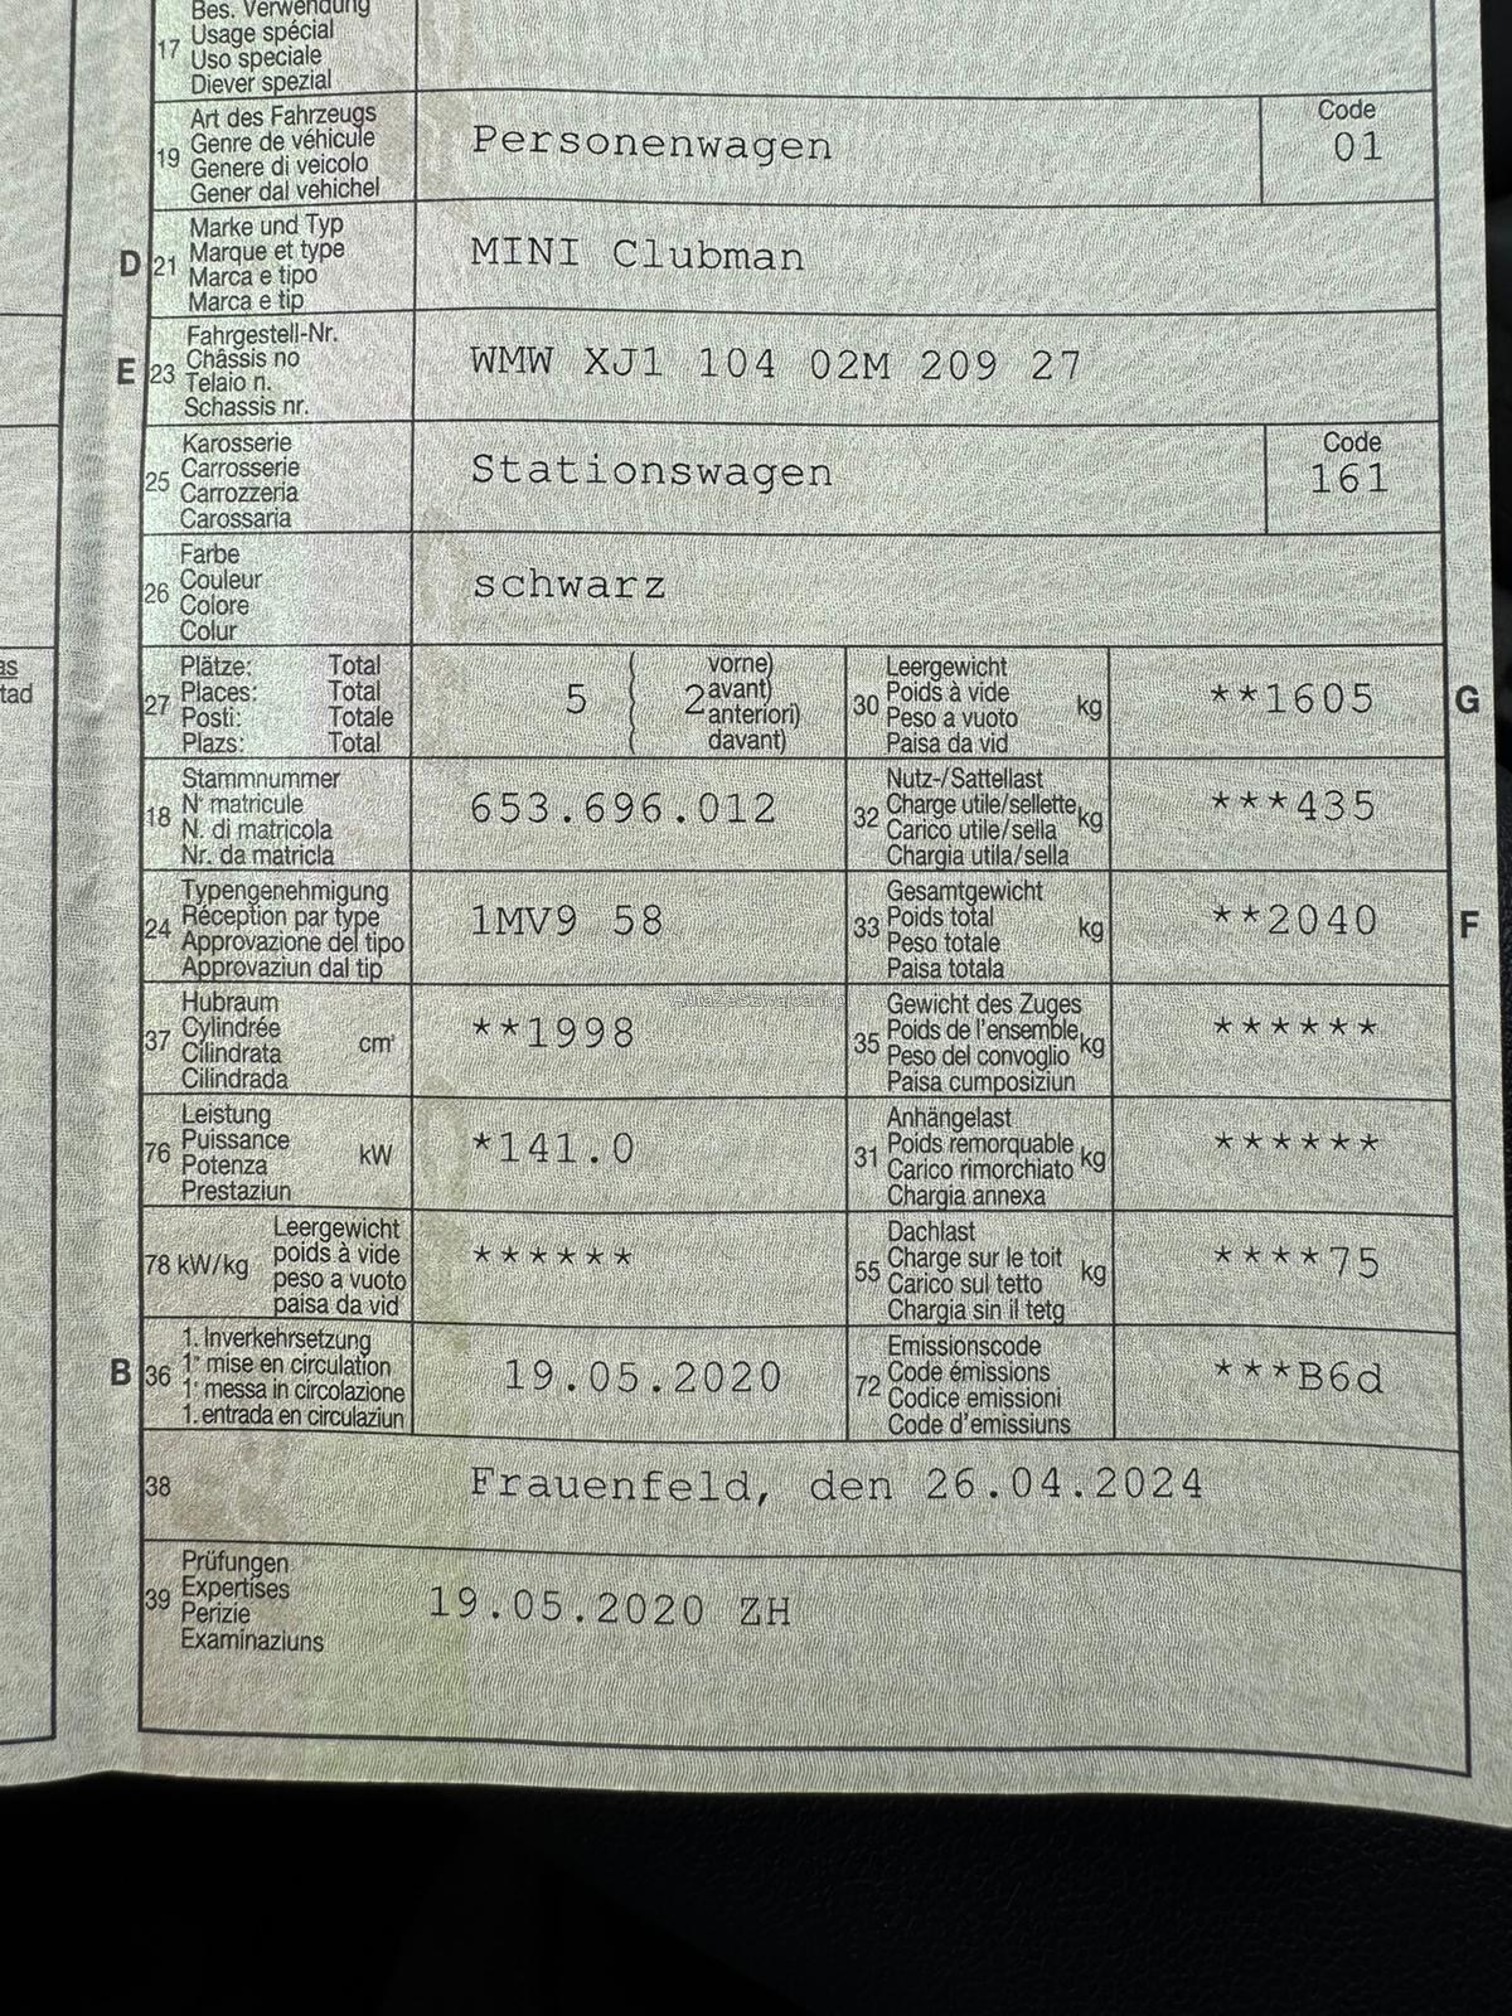 Bes. Verwendung
17 Usage spécial
Uso speciale
Diever spezial
Art des Fahrzeugs
19 Genre de véhicule
Genere di veicolo
Gener dal vehichel
Personenwagen
Code
01
D 21 Marke und Typ
Marque et type
Marca e tipo
Marca e tip
MINI Clubman
E 23 Fahrgestell-Nr.
Châssis no
Telaio n.
Schassis nr.
WMW XJ1 104 02M 209 27
25 Karosserie
Carrosserie
Carrozzeria
Carossaria
Stationswagen
Code
161
26 Farbe
Couleur
Colore
Colur
schwarz
as
tad
27 Plätze: Total
Places: Total
Posti: Totale
Plazs: Total
5 { 2 vorne)
avant)
anteriori)
davant)
30 Leergewicht
Poids à vide kg
Peso a vuoto
Paisa da vid
**1605 G
18 Stammnummer
N° matricule
N. di matricola
Nr. da matricla
653.696.012
32 Nutz-/Sattellast
Charge utile/sellette kg
Carico utile/sella
Chargia utila/sella
***435
24 Typengenehmigung
Réception par type
Approvazione del tipo
Approvaziun dal tip
1MV9 58
33 Gesamtgewicht
Poids total kg
Peso totale
Paisa totala
**2040 F
37 Hubraum
Cylindrée cm³
Cilindrata
Cilindrada
**1998
35 Gewicht des Zuges
Poids de l'ensemble kg
Peso del convoglio
Paisa cumposiziun
******
76 Leistung
Puissance kW
Potenza
Prestaziun
*141.0
31 Anhängelast
Poids remorquable kg
Carico rimorchiato
Chargia annexa
******
78 kW/kg Leergewicht
poids à vide
peso a vuoto
paisa da vid
******
55 Dachlast
Charge sur le toit kg
Carico sul tetto
Chargia sin il tetg
****75
B 36 1. Inverkehrsetzung
1re mise en circulation
1a messa in circolazione
1. entrada en circulaziun
19.05.2020
72 Emissionscode
Code émissions
Codice emissioni
Code d'emissiuns
***B6d
38 Frauenfeld, den 26.04.2024
39 Prüfungen
Expertises
Perizie
Examinaziuns
19.05.2020 ZH